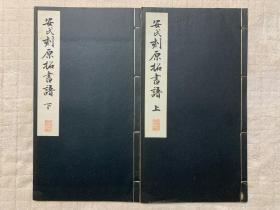 安氏刻原拓書譜 上
安氏刻原拓書譜 下